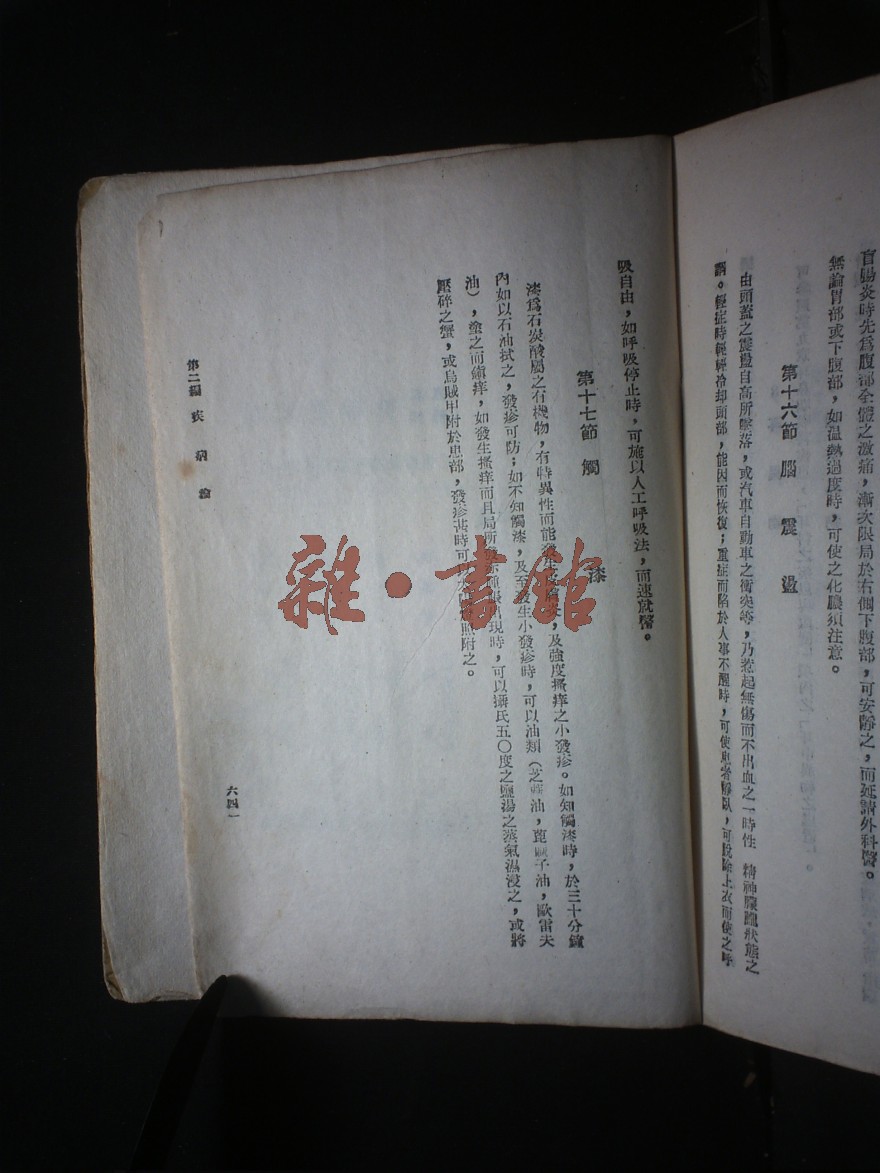 盲腸炎時先爲腹部全體之激痛，漸次限局於右側下腹部，可安靜之，而延請外科醫。
無論胃部或下腹部，如温熱過度時，可使之化膿須注意。
第十六節 腦震盪
由頭蓋之震盪自高所墜落，或汽車自動車之衝突等，乃惹起無傷而不出血之一時性 精神朦朧狀態之
謂。輕症時輕輕冷却頭部，能因而恢復；重症而陷於人事不醒時，可使患者靜臥，可脫除上衣而使之呼
吸自由，如呼吸停止時，可施以人工呼吸法，而速就醫。
第十七節 觸漆
漆爲石炭酸屬之有機物，有特異性而能及強度搔痒之小發疹。如知觸漆時，於三十分鐘
內如以石油拭之，發疹可防；如不知觸漆，及至發生小發疹時，可以油類（芝蔴油，萞麻子油，歐雷夫
油），塗之而鎮痒，如發生搔痒而且局所現時，可以攝氏五〇度之鹽湯之蒸氣濕浸之，或將
壓碎之蟹，或烏賊甲附於患部，發疹甚時可照附之。
第二編 疾病論
六四一
雜·書館